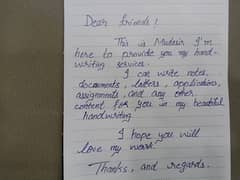 Dear friends!
This is Mudasir I'm
here to provide you my hand-
writing services.
I cat write notes,
documents, letters, applications,
assignments, and any other
content for you in my beautiful
handwriting.
I hope you will
love my work.
Thanks, and regards.